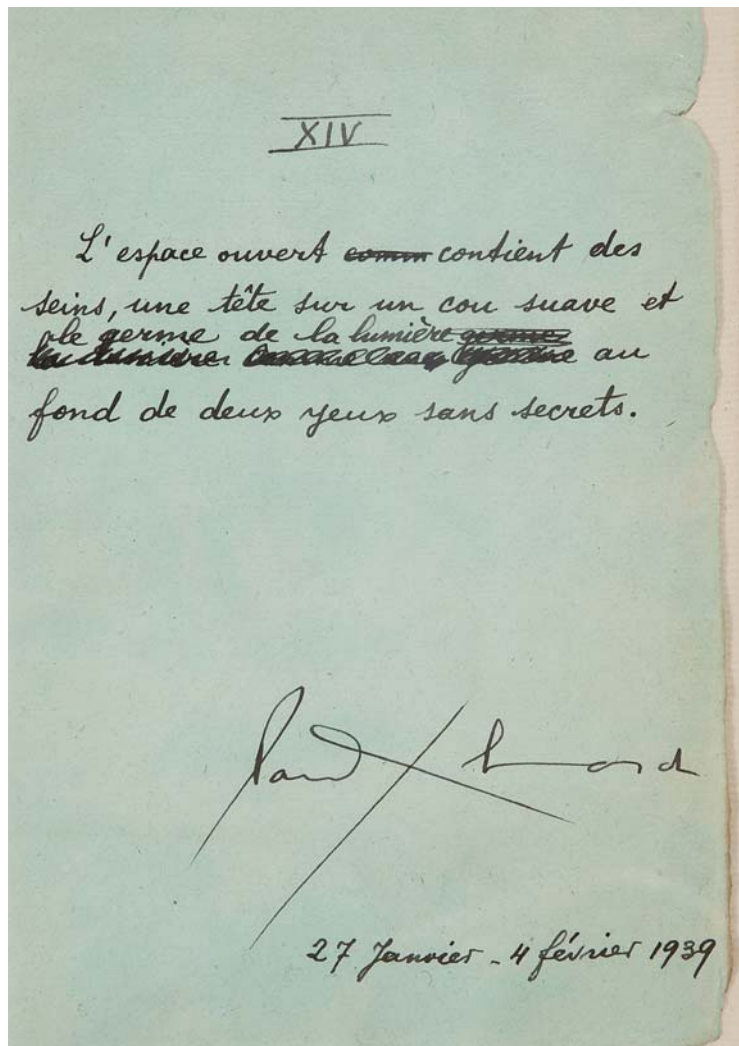 XIV
L'espace ouvert comm contient des
seins, une tête sur un cou suave et
le germe de la lumière germe
au
fond de deux yeux sans secrets.
Paul Eluard
27 Janvier - 4 février 1939